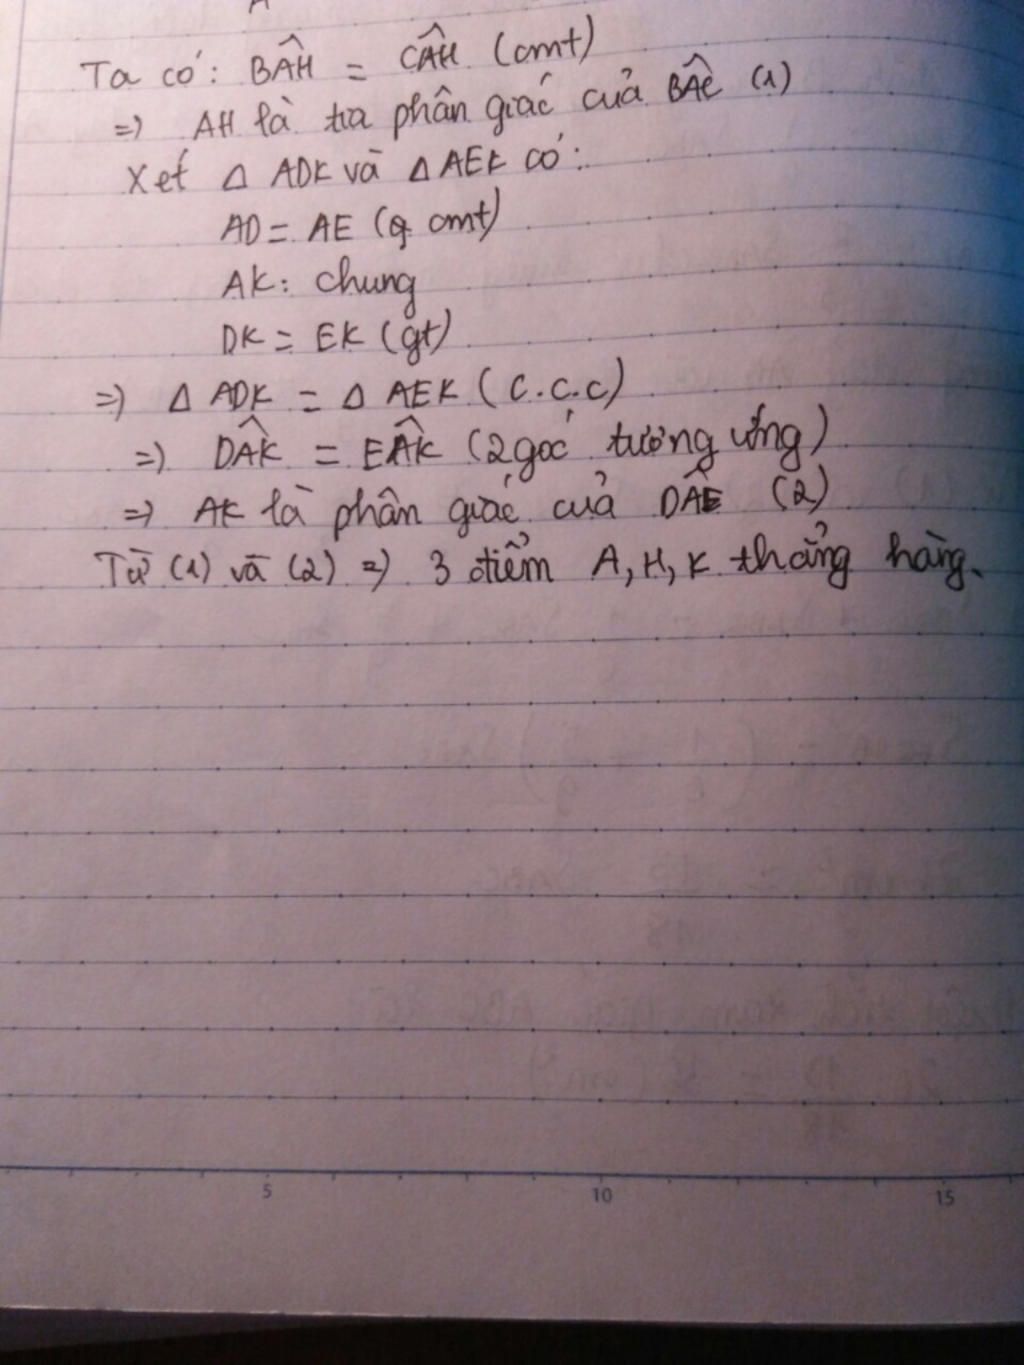 Ta có: BÂH = CÂH (cmt)
=) AH là tia phân giác của BÂC (1)
Xét Δ ADK và Δ AEK có:
AD = AE (cmt)
AK: chung
DK = EK (gt)
=) Δ ADK = Δ AEK (C.C.C)
=) DÂK = EÂK (2 góc tương ứng)
=) AK là phân giác của DÂE (2)
Từ (1) và (2) =) 3 điểm A, H, K thẳng hàng.
5 10 15